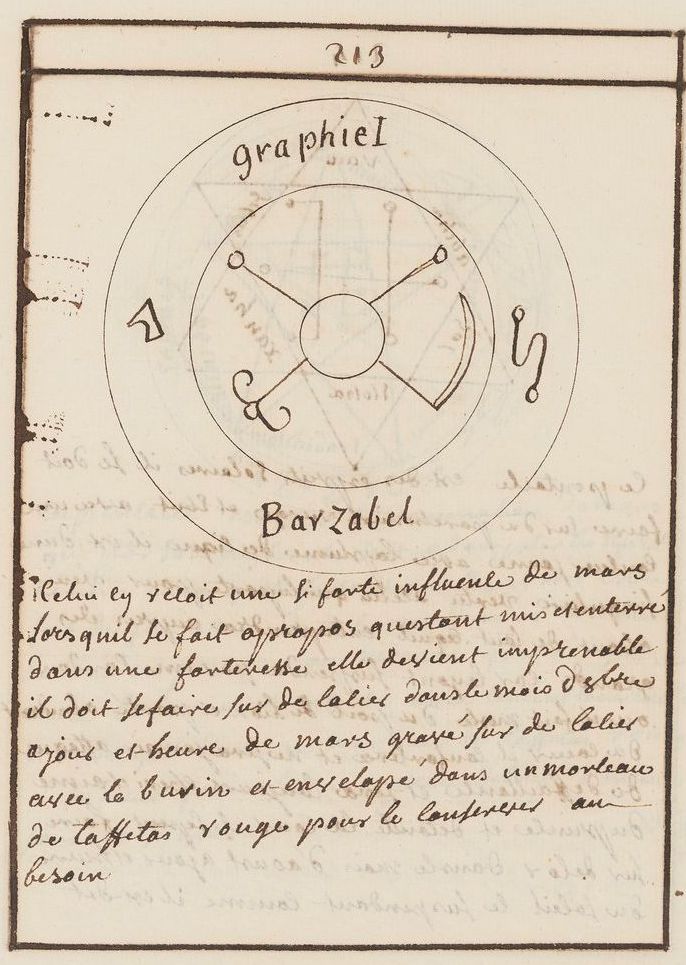 213
graphiel
Barzabel
Celui cy recoit une si forte influence de mars
lorsquil se fait apropos questant mis etenterré
dans une forteresse elle devient imprenable
il doit sefaire sur de lacier dansle mois d 8bre
ajour et heure de mars gravé sur de lacier
avec le burin et envelopé dans unmorceau
de taffetas rouge pour le conserver au
besoin